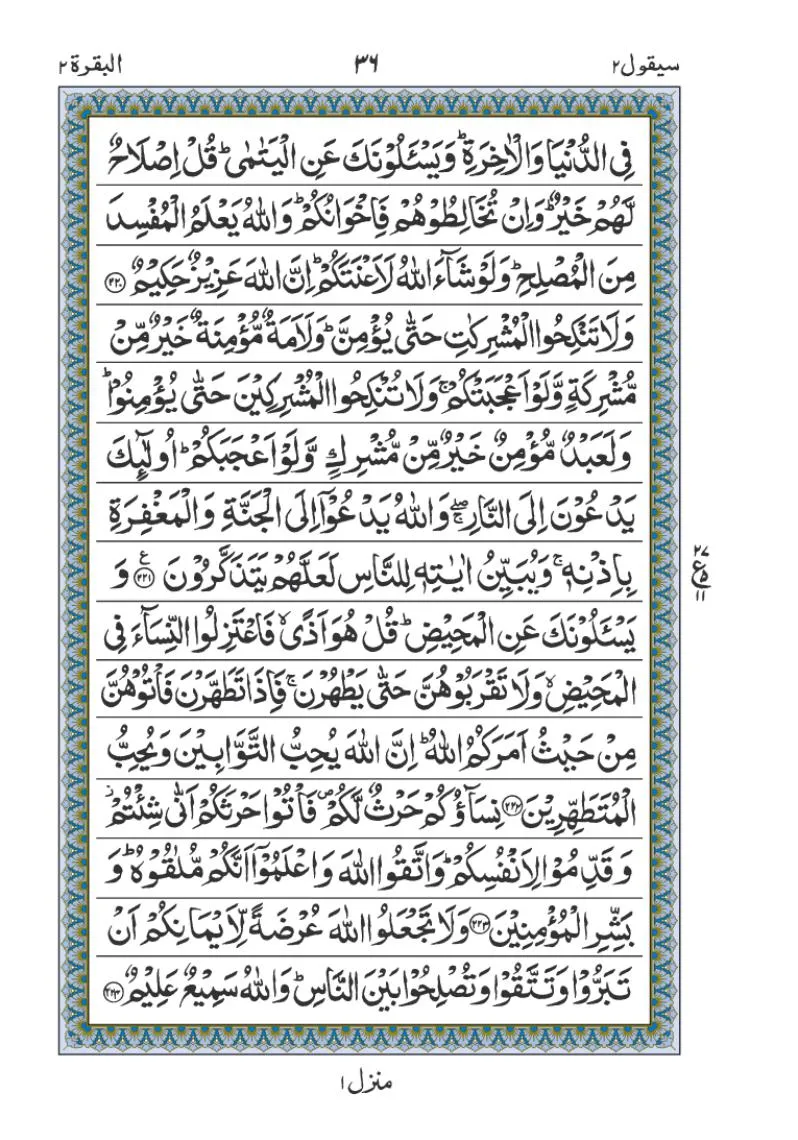 سيقول ٢
٣٦
البقرة ٢
فِى الدُّنْيَا وَالْاٰخِرَةِ ؕ وَيَسْــَٔلُوْنَكَ عَنِ الْيَتٰمٰى ؕ قُلْ اِصْلَاحٌ
لَّهُمْ خَيْرٌ ؕ وَاِنْ تُخَالِطُوْهُمْ فَاِخْوَانُكُمْ ؕ وَاللّٰهُ يَعْلَمُ الْمُفْسِدَ
مِنَ الْمُصْلِحِ ؕ وَلَوْ شَآءَ اللّٰهُ لَاَعْنَتَكُمْ ؕ اِنَّ اللّٰهَ عَزِيْزٌ حَكِيْمٌ ﴿۲۲۰﴾
وَلَا تَنْكِحُوا الْمُشْرِكٰتِ حَتّٰى يُؤْمِنَّ ؕ وَلَاَمَةٌ مُّؤْمِنَةٌ خَيْرٌ مِّنْ
مُّشْرِكَةٍ وَّلَوْ اَعْجَبَتْكُمْ ۚ وَلَا تُنْكِحُوا الْمُشْرِكِيْنَ حَتّٰى يُؤْمِنُوْا ؕ
وَلَعَبْدٌ مُّؤْمِنٌ خَيْرٌ مِّنْ مُّشْرِكٍ وَّلَوْ اَعْجَبَكُمْ ؕ اُولٰٓئِكَ
يَدْعُوْنَ اِلَى النَّارِ ۖۚ وَاللّٰهُ يَدْعُوْٓا اِلَى الْجَنَّةِ وَالْمَغْفِرَةِ
بِاِذْنِهٖ ۚ وَيُبَيِّنُ اٰيٰتِهٖ لِلنَّاسِ لَعَلَّهُمْ يَتَذَكَّرُوْنَ ﴿۲۲۱﴾ ع وَ
٢٧
ع
٥
١١
يَسْــَٔلُوْنَكَ عَنِ الْمَحِيْضِ ؕ قُلْ هُوَ اَذًى ۙ فَاعْتَزِلُوا النِّسَآءَ فِى
الْمَحِيْضِ ۙ وَلَا تَقْرَبُوْهُنَّ حَتّٰى يَطْهُرْنَ ۚ فَاِذَا تَطَهَّرْنَ فَاْتُوْهُنَّ
مِنْ حَيْثُ اَمَرَكُمُ اللّٰهُ ؕ اِنَّ اللّٰهَ يُحِبُّ التَّوَّابِيْنَ وَيُحِبُّ
الْمُتَطَهِّرِيْنَ ﴿۲۲۲﴾ نِسَآؤُكُمْ حَرْثٌ لَّكُمْ ۪ فَاْتُوْا حَرْثَكُمْ اَنّٰى شِئْتُمْ ؗ
وَقَدِّمُوْا لِاَنْفُسِكُمْ ؕ وَاتَّقُوا اللّٰهَ وَاعْلَمُوْٓا اَنَّكُمْ مُّلٰقُوْهُ ؕ وَ
بَشِّرِ الْمُؤْمِنِيْنَ ﴿۲۲۳﴾ وَلَا تَجْعَلُوا اللّٰهَ عُرْضَةً لِّاَيْمَانِكُمْ اَنْ
تَبَرُّوْا وَتَتَّقُوْا وَتُصْلِحُوْا بَيْنَ النَّاسِ ؕ وَاللّٰهُ سَمِيْعٌ عَلِيْمٌ ﴿۲۲۴﴾
منزل ١